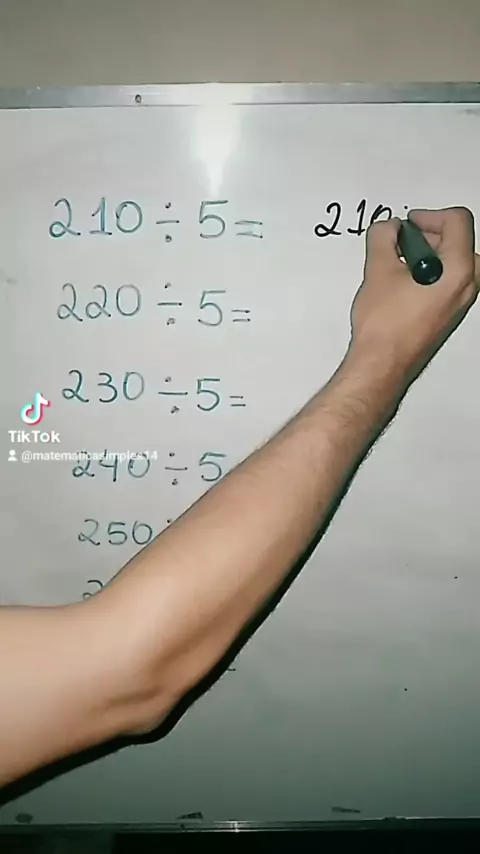 210 ÷ 5 = 210
220 ÷ 5 =
230 ÷ 5 =
TikTok
@matematicasimples14
240 ÷ 5
250